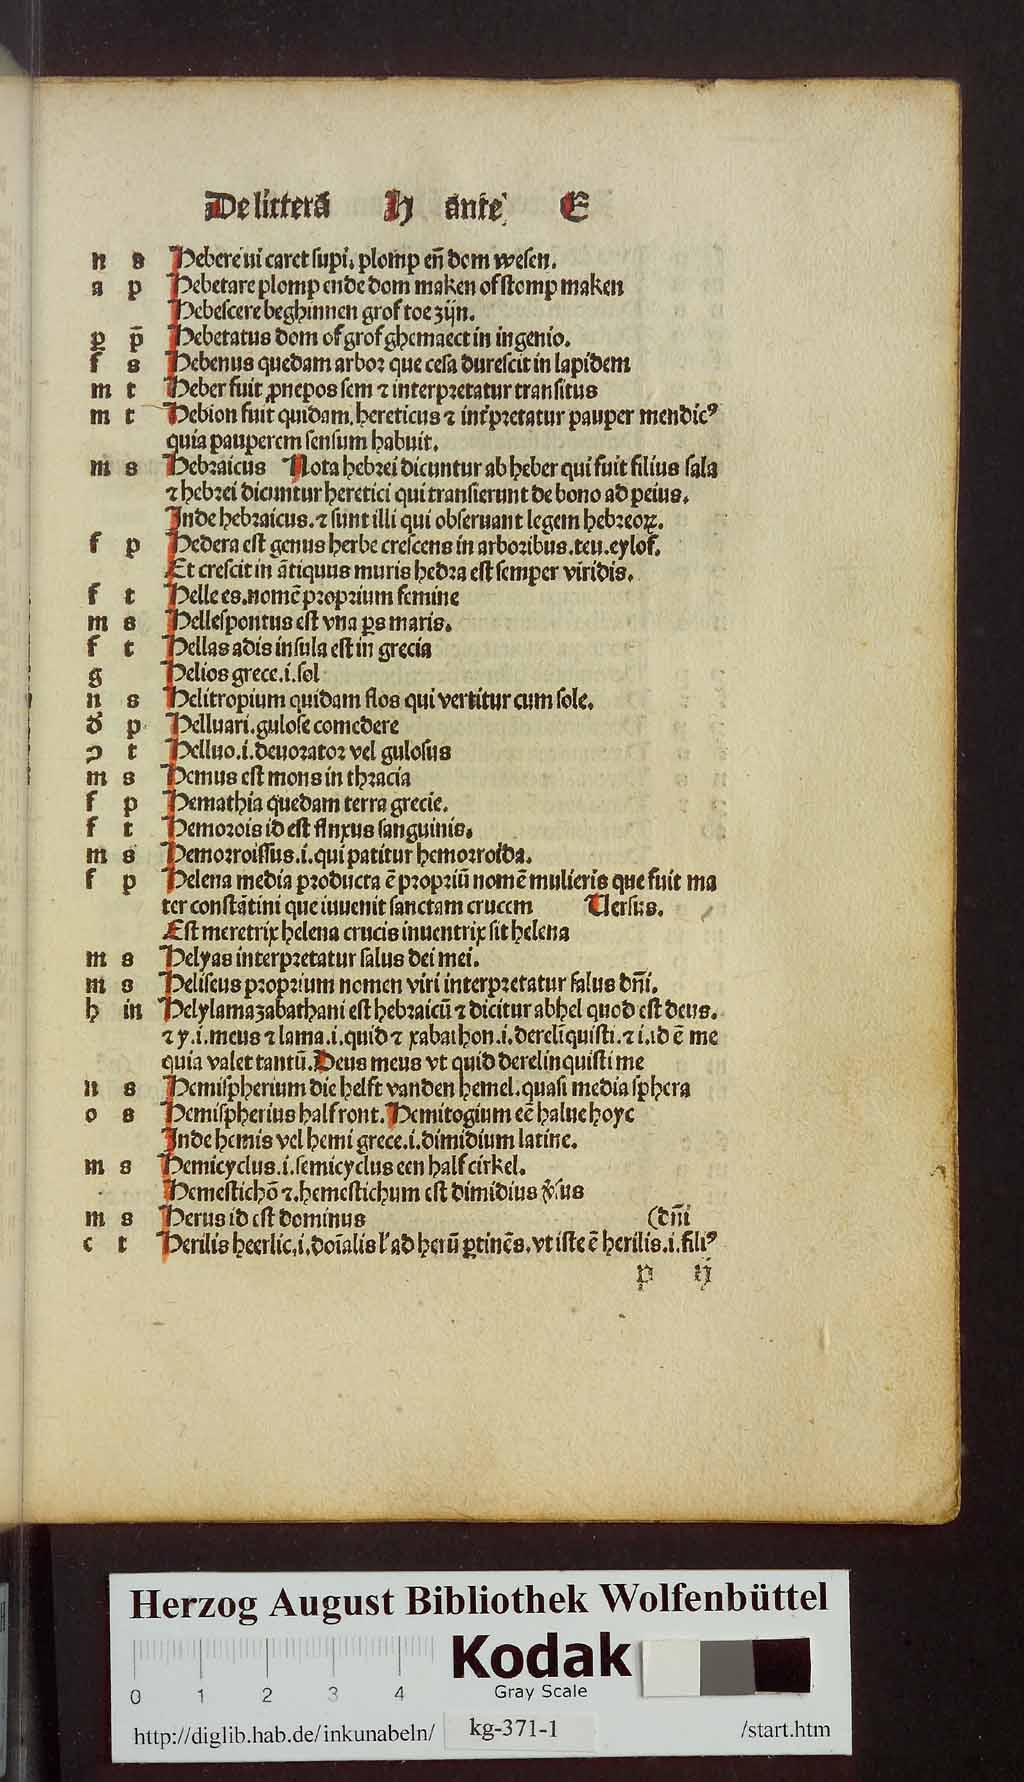 De litterā H ante E
n s Hebere ui caret supi. plomp eñ dom wesen.
a p Hebetare plomp ende dom maken of stomp maken
Hebescere beghinnen grof toe zijn.
ꝑ p̄ Hebetatus dom of grof ghemaect in ingenio.
f s Hebenus quedam arbor que cesa durescit in lapidem
m t Heber fuit ꝓnepos sem ⁊ interpretatur transitus
m t Hebion fuit quidam hereticus ⁊ int'pretatur pauper mendicꝰ
quia pauperem sensum habuit.
m s Hebraicus Nota hebrei dicuntur ab heber qui fuit filius sala
⁊ hebrei dicuntur heretici qui transierunt de bono ad peius.
Inde hebraicus. ⁊ sunt illi qui obseruant legem hebreoꝝ.
f p Hedera est genus herbe crescens in arboribus. teu. eylof.
Et crescit in ātiquus muris hedra est semper viridis.
f t Helle es. nomē proprium femine
m s Hellespontus est vna ꝑs maris.
f t Hellas adis insula est in grecia
g Helios grece .i. sol
n s Helitropium quidam flos qui vertitur cum sole.
p Helluari. gulose comedere
ↄ t Helluo .i. deuorator vel gulosus
m s Hemus est mons in thracia
f p Hemathia quedam terra grecie.
f t Hemorois id est flnxus sanguinis.
m s Hemorroissus .i. qui patitur hemorroida.
f p Helena media producta ē propriū nomē mulieris que fuit ma
ter constātini que iuuenit sanctam crucem Versus.
Est meretrix helena crucis inuentrix sit helena
m s Helyas interpretatur salus dei mei.
m s Heliseus proprium nomen viri interpretatur salus dñi.
h in Helylamazabathani est hebraicū ⁊ dicitur ab hel quod est deus.
⁊ y .i. meus ⁊ lama .i. quid ⁊ xabathon .i. dereliquisti. ⁊ i. id ē me
quia valet tantū. Deus meus vt quid derelinquisti me
n s Hemispherium die helft vanden hemel. quasi media sphera
o s Hemispherius halfront. Hemitogium eē halue hoyc
Inde hemis vel hemi grece .i. dimidium latine.
m s Hemicyclus .i. semicyclus een half cirkel.
Hemestichō ⁊. hemestichum est dimidius v̓sus
m s Herus id est dominus (dñi
c t Herilis heerlic .i. doīalis l' ad herū ꝑtinēs. vt iste ē herilis .i. filiꝰ
p ij
Herzog August Bibliothek Wolfenbüttel
Kodak
Gray Scale
0 1 2 3 4
http://diglib.hab.de/inkunabeln/ kg-371-1 /start.htm